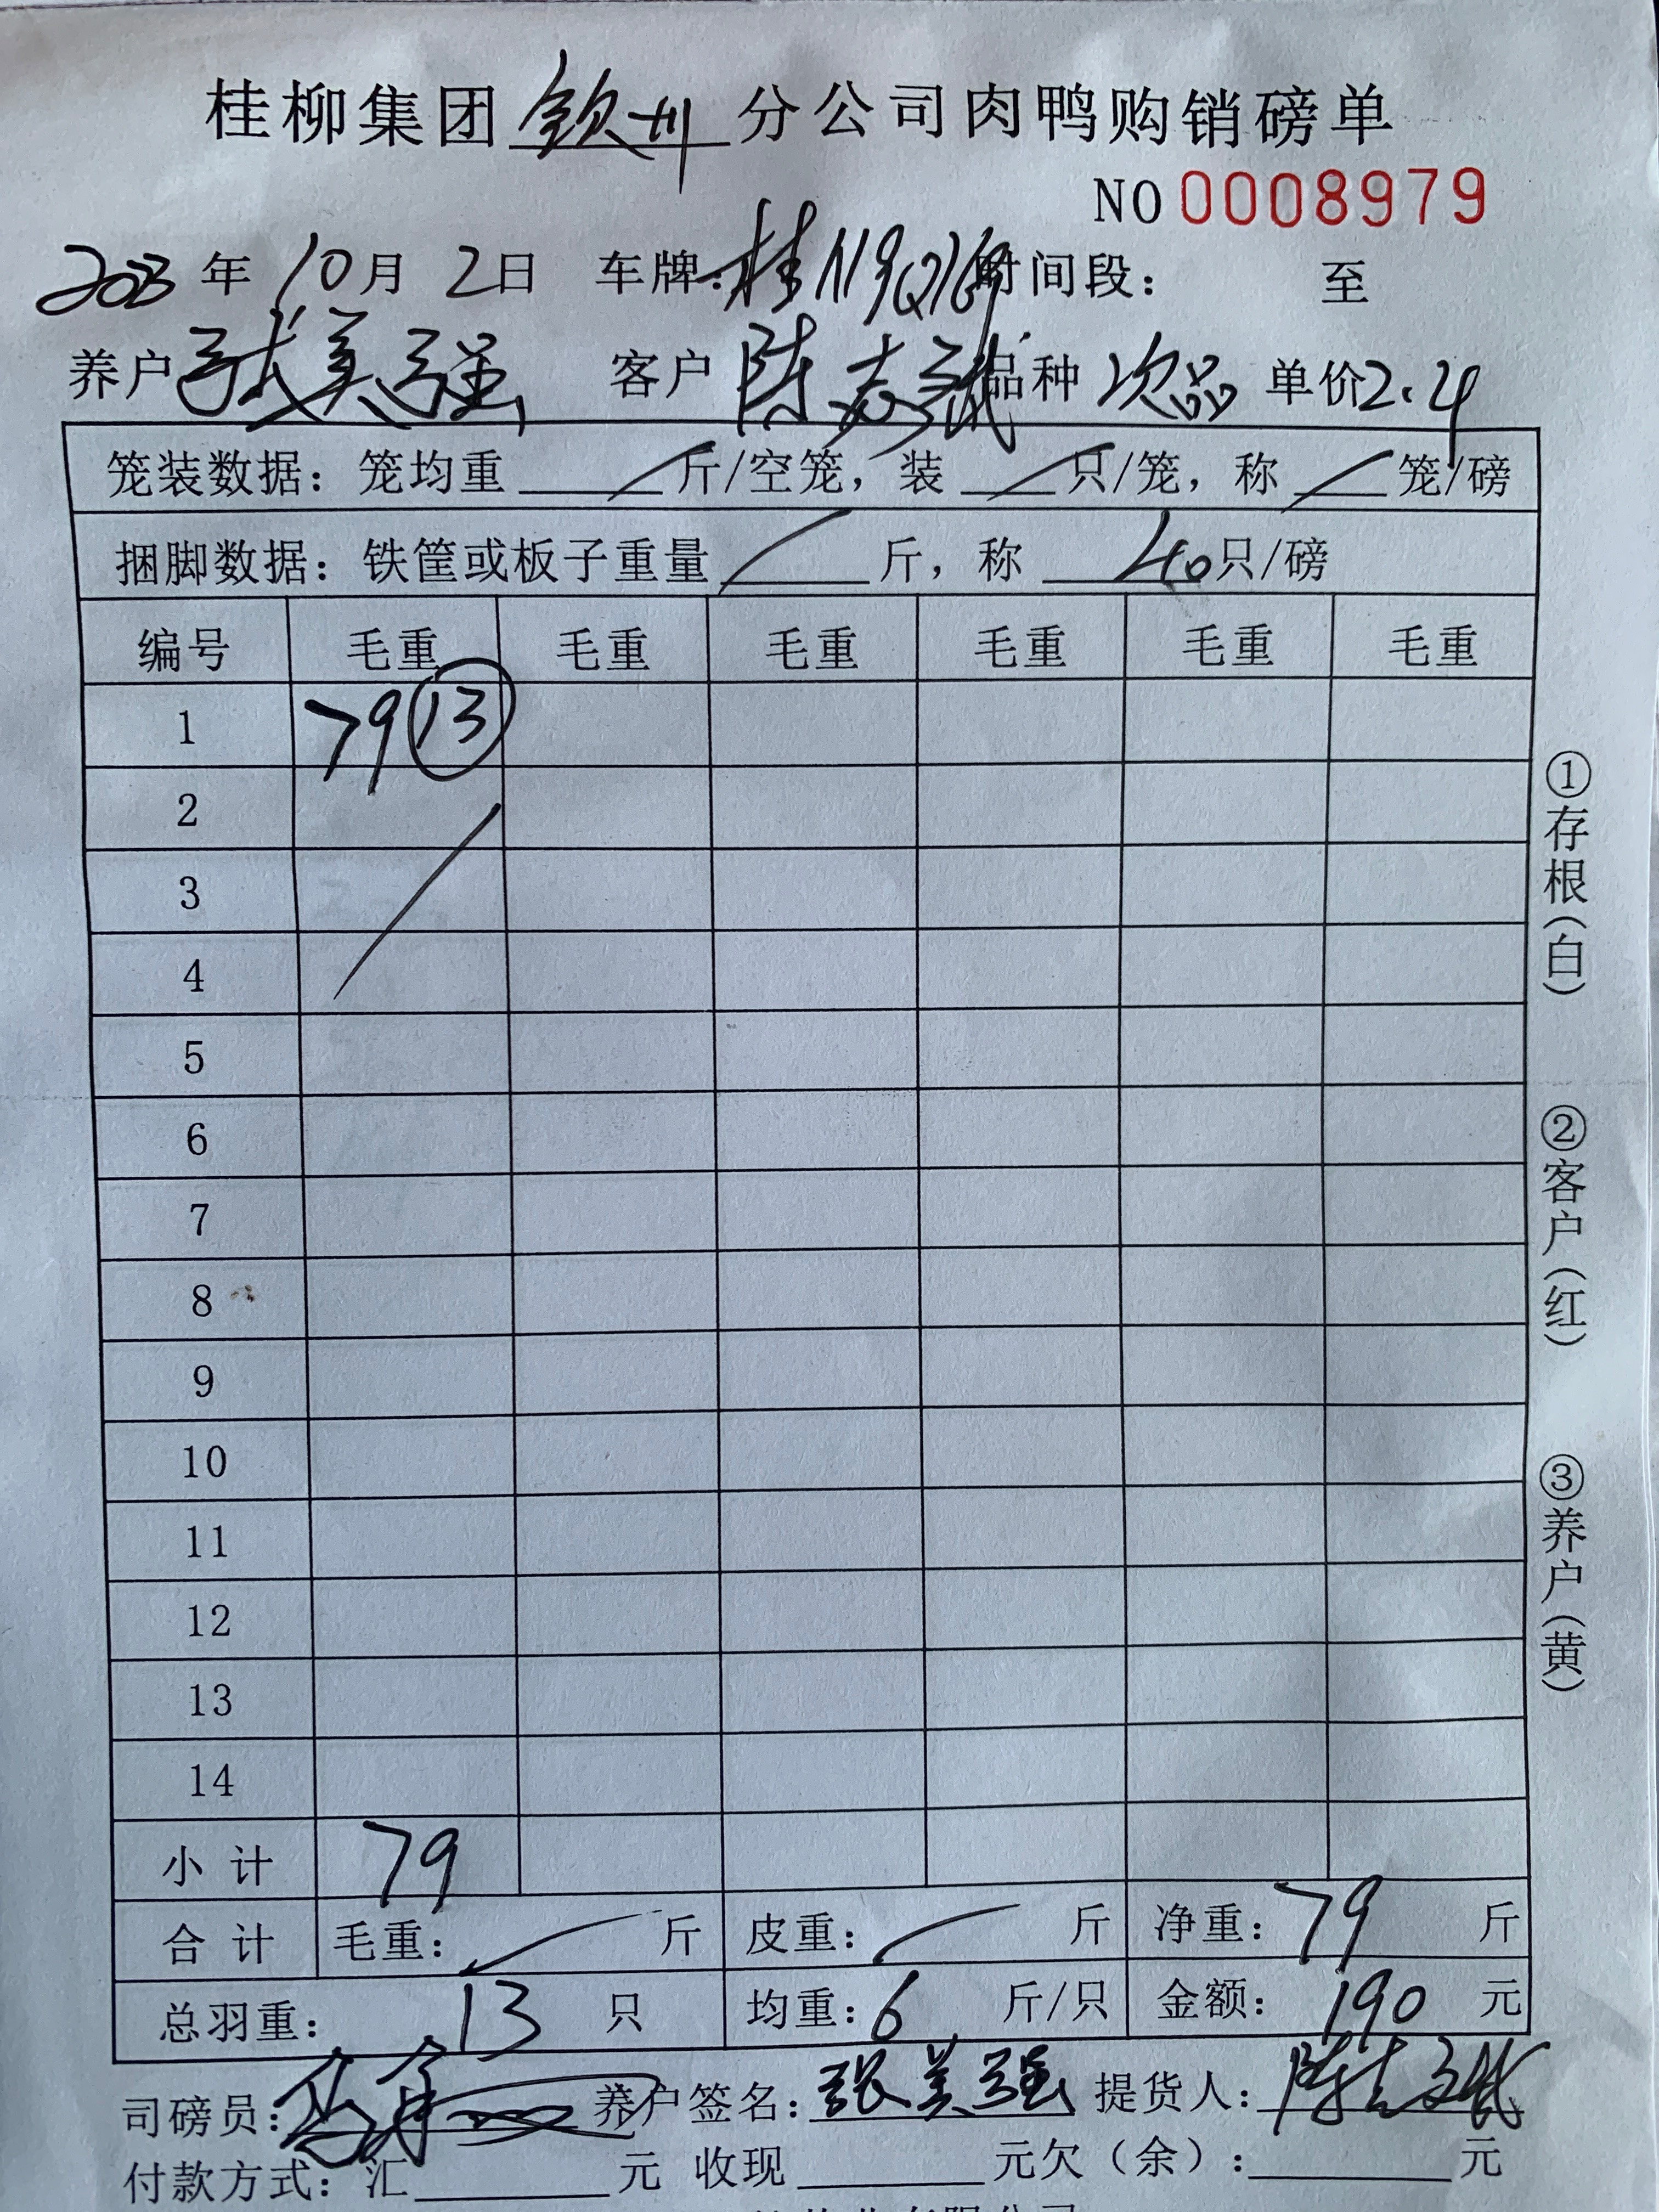 桂柳集团钦州分公司肉鸭购销磅单
NO 0008979
2023年10月2日 车牌：桂N9Q 时间段： 至
养户 张美强 客户 陈志 品种 次品 单价2.4
笼装数据：笼均重 / 斤/空笼，装 / 只/笼，称 / 笼/磅
捆脚数据：铁筐或板子重量 / 斤，称 40只/磅
编号 毛重 毛重 毛重 毛重 毛重 毛重
1 79 13
2
3
4
5
6
7
8
9
10
11
12
13
14
小计 79
合计 毛重： / 斤 皮重： / 斤 净重：79 斤
总羽重：13 只 均重：6 斤/只 金额：190 元
司磅员： 养户签名：张美强 提货人：陈志
付款方式：汇 元 收现 元欠（余）： 元
①存根（白）
②客户（红）
③养户（黄）